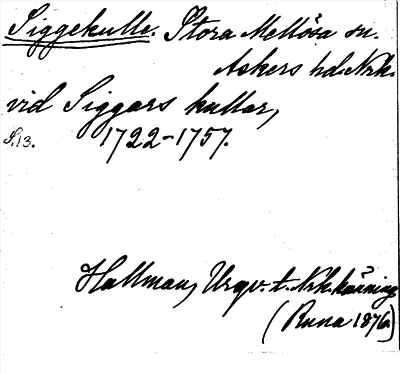 Siggekulle. Stora Mellösa sn.
Askers hd. Nrk.
vid Siggars kullar,
S. 13. 1722-1757.
Hallman, Urgv. t. Nrk. känning
(Runa 1876)